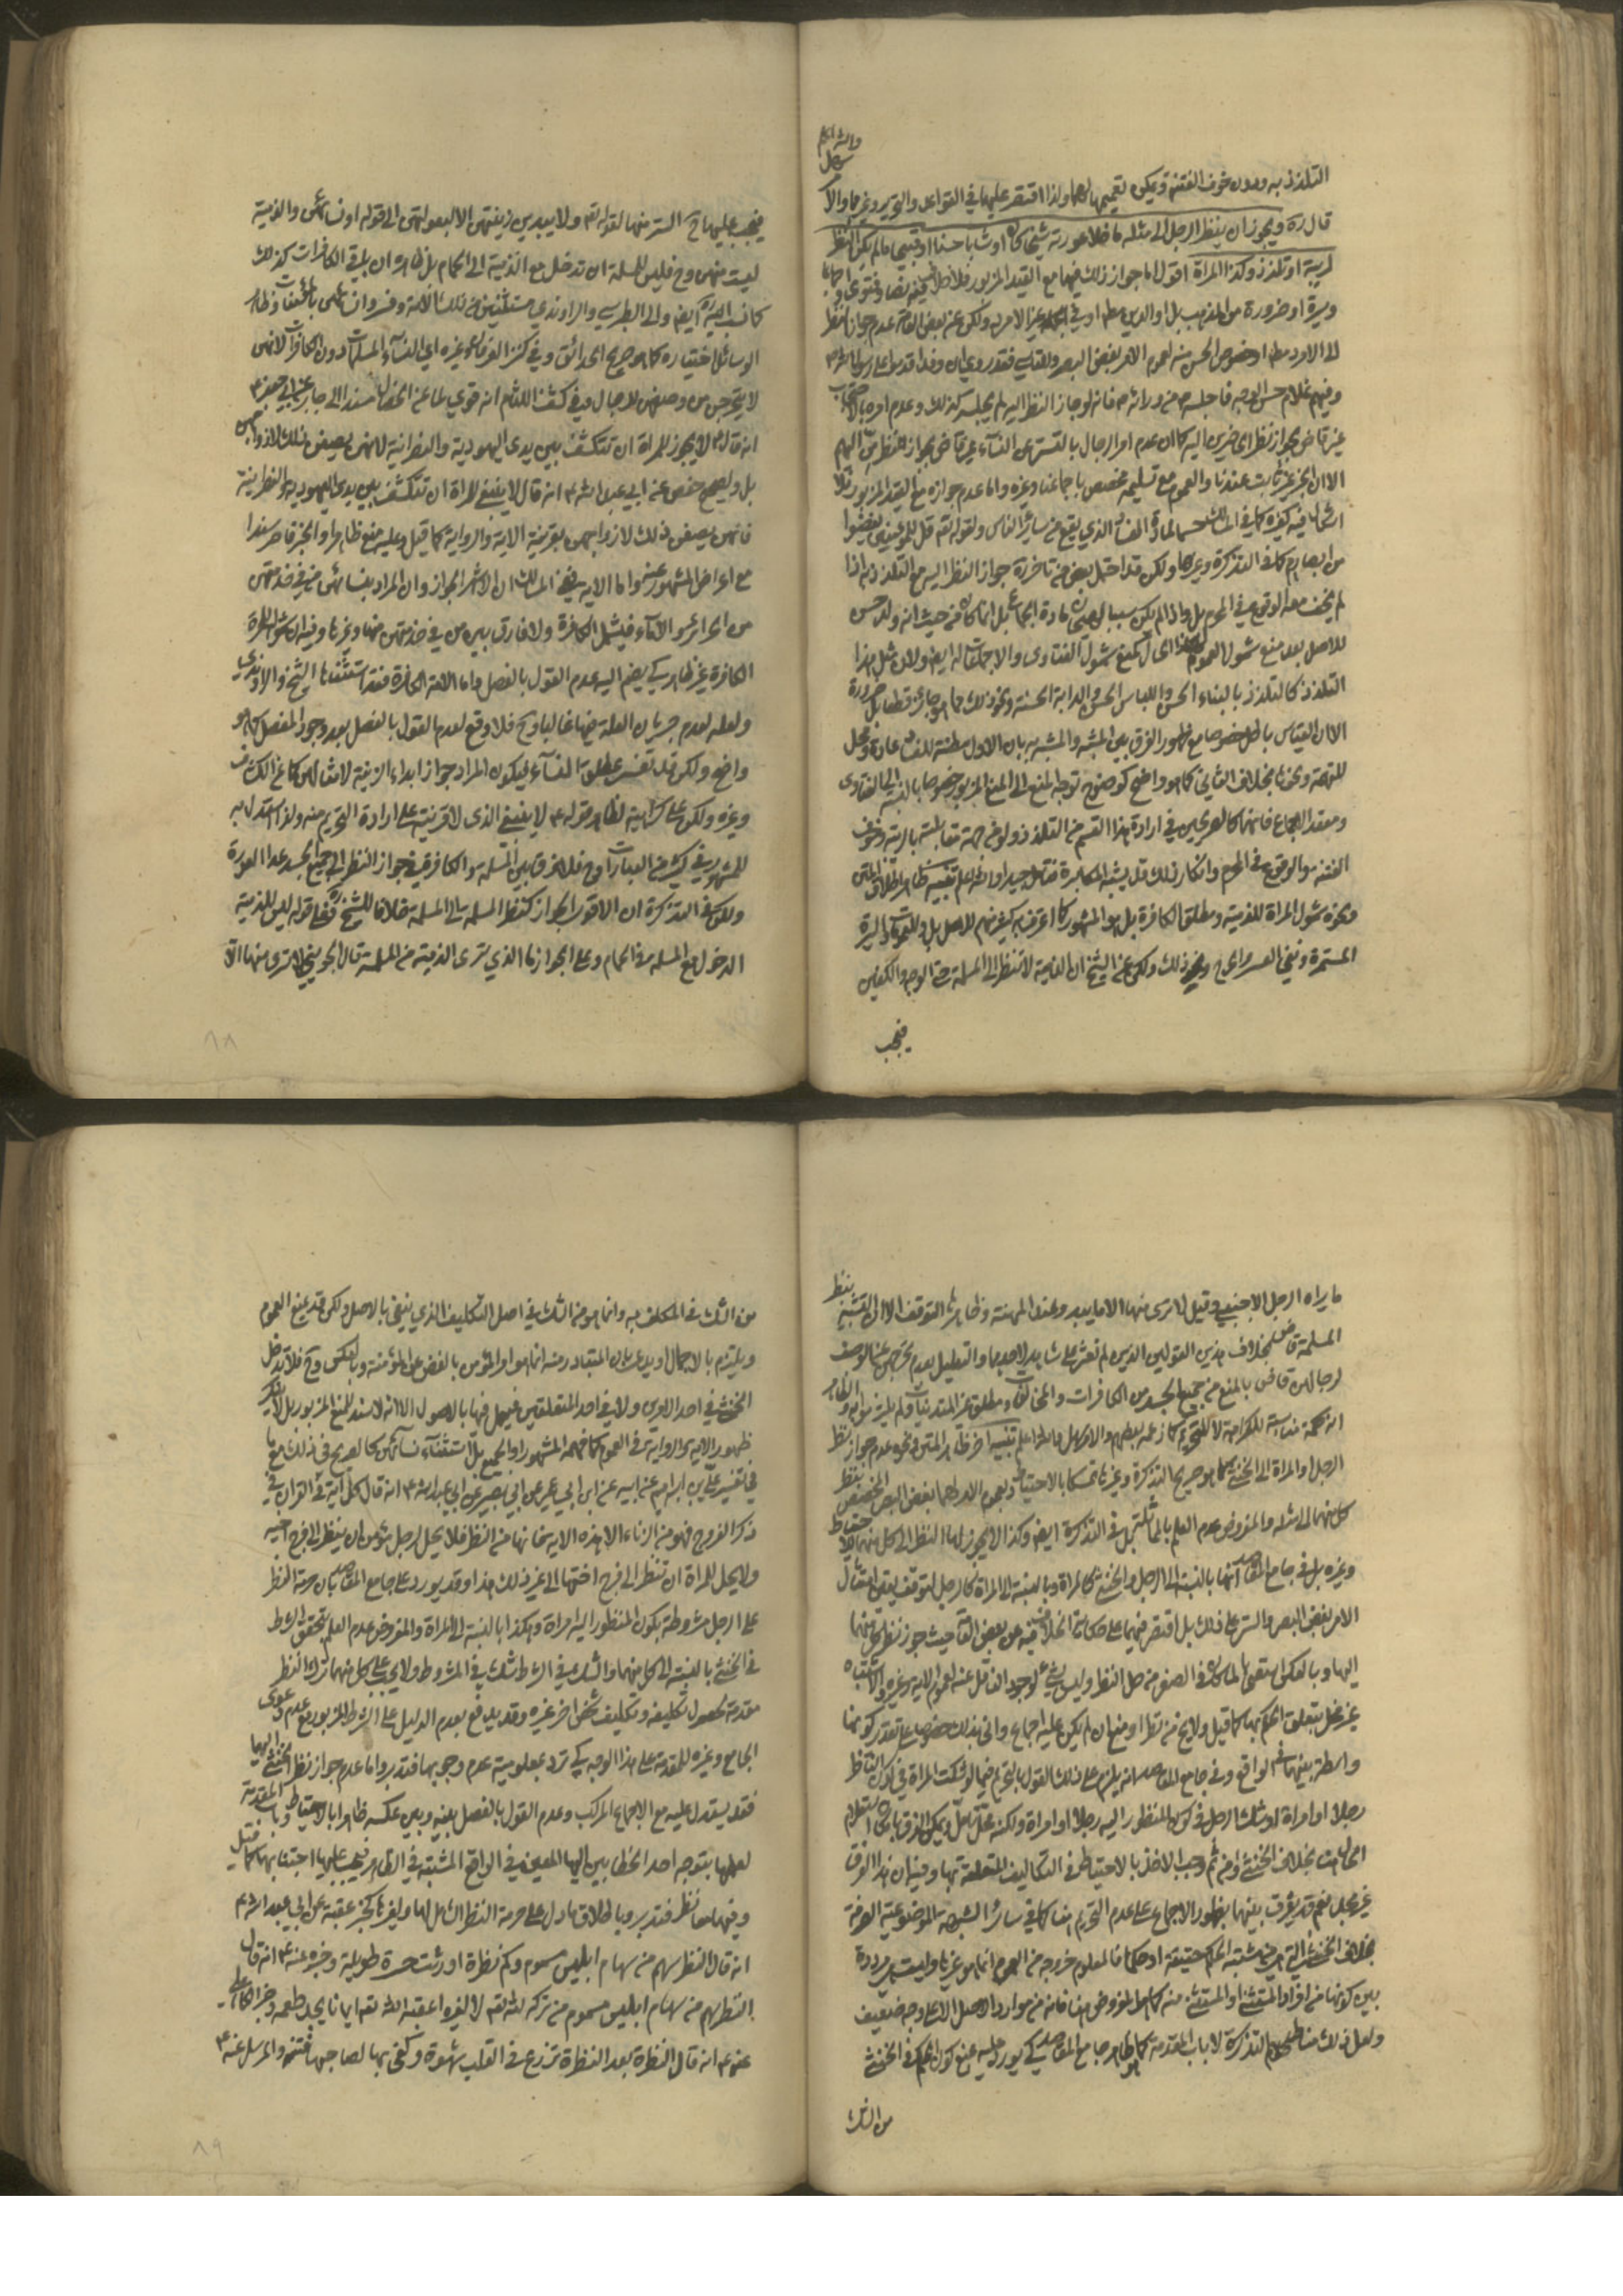 التلذذ به وبدون خوف الفتنة ويمكن تعميمها لهما ولذا اقتصر عليهما في القواعد والتحرير وغيرهما والا
والله اعلم
قال ره ويجوز ان ينظر الرجل الى مثله ما خلا عورته شيخا كان او شابا حسنا او قبيحا ما لم يكن النظر
لريبة او تلذذ وكذا المراة اقول اما جواز ذلك فيهما مع القيد المزبور فلا
وسيرة او ضرورة من المذهب بل او الدين ولكن عن بعض العامة عدم جواز النظر
الى الامرد مطلقا او خصوص الحسن منه لعموم الامر بغض البصر
وفيهم غلام حسن الوجه فاجلسه من ورائه فانه لو جاز النظر اليه لم يجلسه كذلك وعدم امره بالاحتجاب
غير قاض بجواز نظر الحاضرين اليه كما ان عدم امر الرجال بالتستر عن النساء غير قاض بجواز نظرهن اليهم
الا ان الخبر غير ثابت عندنا والعموم مع تسليمه مخصص باجماعنا وغيره واما عدم جوازه مع القيد المزبور فلا
اشكال فيه كغيره كما في المسالك حسما لمادة الفساد الذي يقع من سائر الناس ولقوله تع قل للمؤمنين يغضوا
من ابصارهم كما في التذكرة وغيرها ولكن قد احتمل بعض من تاخر ره جواز النظر اليه مع التلذذ به اذا
لم يخف معه الوقوع في المحرم بل واذا لم يكن سببا
للاصل بعد منع شمول العموم لهذا الحال كمنع شمول الفتاوى والاجماعات له ايضا ولان مثل هذا
التلذذ كالتلذذ بالبناء الحسن واللباس الحسن والدابة الحسنة ونحو ذلك مما هو جائز قطعا بل ضرورة
الا ان القياس باطل خصوصا مع ظهور الفرق بين المشبه والمشبه به بان الاول مظنة للفساد عادة ومحل
للتهمة ونحوها بخلاف الثاني كما هو واضح كوضوح توجه المنع الى المنع المزبور خصوصا بالنسبة الى الفتاوى
ومعقد الاجماع فانهما كالصريحين في ارادة هذا القسم من التلذذ ولو من جهة مقابلته بالريبة وخوف
الفتنة والوقوع في المحرم وانكار ذلك قد يشبه المكابرة فتامل جيدا والله اعلم تنبيه ظاهر اطلاق المتن
ونحوه شمول المراة للذمية ومطلق الكافرة بل هو المشهور كما اعترف به كثير منهم للاصل بل والعمومات والسيرة
المستمرة ونفي العسر والحرج ونحو ذلك ولكن عن الشيخ ان الذمية لا تنظر الى المسلمة حتى الوجه والكفين
فيجب
فيجب عليها ح الستر منها لقوله تع ولا يبدين زينتهن الا لبعولتهن الى قوله او نسائهن والذمية
ليست منهن وح فليس للمسلمة ان تدخل مع الذمية الى الحمام بل ظاهره ان باقي الكافرات كذلك
كما نسب اليه ره ايضا والى الطبرسي والراوندي مستثنين من ذلك الامة وفسروا نسائهن بالمؤمنات وظاهر
الوسائل اختياره كما هو صريح الحدائق وفي كنز العرفان وغيره اي النساء المسلمات دون الكافرات لانهن
لا يتحرجن من وصفهن للرجال وفي كشف اللثام انه قوي لما عن الخصال مسندا الى جابر عن ابي جعفر ع
انه قال لا يجوز للمراة ان تنكشف بين يدي اليهودية والنصرانية لانهن يصفن ذلك لازواجهن
بل ولصحيح حفص عن ابي عبد الله ع انه قال لا ينبغي للمراة ان تنكشف بين يدي اليهودية والنصرانية
فانهن يصفن ذلك لازواجهن بقرينة الاية والرواية كما قيل وعليه منع ظاهر والخبر قاصر سندا
مع اعراض المشهور عنه واما الاية ففي المسالك ان الاشهر الجواز وان المراد بنسائهن من في خدمتهن
من الحرائر والاماء فيشمل الكافرة ولا فارق بين من في خدمتهن منها وغيرها وفيه ان شمول المراة
الكافرة غير ظاهر كي يضم اليه عدم القول بالفصل واما الامة الكافرة فقد استثناها الشيخ والراوندي
ولعله لعدم جريان العلة فيها غالبا وح فلا وقع لعدم القول بالفصل بعد وجود المفصل كما هو
واضح ولكن قد تفسر بمطلق النساء ليكون المراد جواز ابداء الزينة لامثالهن كما في الكشاف
وغيره ولكن على كراهية لظاهر قوله ع لا ينبغي الذي لا قرينة على ارادة التحريم منه ولذا استدل به
للمشهور في كثير من العبارات وح فلا فرق بين المسلمة والكافرة في جواز النظر الى جميع الجسد عدا العورة
ولكن في التذكرة ان الاقرب الجواز كنظر المسلمة الى المسلمة خلافا للشيخ ره ففي قوله ليس للذمية
الدخول مع المسلمة في الحمام وعلى الجواز ما الذي ترى الذمية من المسلمة قال الجويني لا ترى منها الا
٨٨
ما يراه الرجل الاجنبي وقيل لا ترى منها الا ما يبدو عند المهنة وظاهره التوقف الا ان التشبيه بنظر
المسلمة قاض بخلاف هذين القولين الذين لم نعثر على شاهد لاحدهما والتعليل بعدم تحرجهن عن الوصف
لرجالهن قاض بالمنع من جميع الجسد من الكافرات والمخالفات
انه حكمة مناسبة للكراهة لا للتحريم كما زعمه بعضهم والامر سهل والله اعلم تنبيه اخر ظاهر المتن ونحوه عدم جواز نظر
الرجل او المراة الى الخنثى كما هو صريح التذكرة وغيرها تمسكا بالاحتياط وبعموم الامر لهما بغض البصر المختص بنظر
كل منهما الى مثله والمفروض عدم العلم بالمماثلة بل في التذكرة ايضا وكذا لا يجوز لها النظر الى كل منهما للاحتياط
وغيره بل في جامع المقاصد انها بالنسبة الى الرجل والخنثى كالمراة وبالنسبة الى المراة كالرجل لتوقف يقين امتثال
الامر بغض البصر والستر على ذلك بل اقتصر فيهما على حكاية الخلاف فيه عن بعض العامة حيث جوز نظر كل منهما
اليها وبالعكس استصحابا لما كان في الصغر من حل النظر وليس بشيء لوجود الناقل عنه لعموم الاية وغيره والاشتباه
غير مخل بتعلق الحكم بها كما قيل ولا يخ من نظر او منع ان لم يكن عليه اجماع واني بذلك خصوصا على تقدير كونها
واسطة بينهما في الواقع وفي جامع المقاصد انه يلزم على ذلك القول بالتحريم فيما لو شكت المراة في كون الناظر
رجلا او امراة او شك الرجل في كون المنظور اليه رجلا او امراة ولكنه محل تامل ويمكن الفرق بامكان استعلام
الحال هنا بخلاف الخنثى ومن ثم وجب الاخذ بالاحتياط في التكاليف المتعلقة بها وفيه ان هذا الفرق
غير مجد نعم قد يفرق بينهما بظهور الاجماع على عدم التحريم هنا كما في سائر الشبه الموضوعية الصرفة
بخلاف الخنثى التي هي مشتبه الحكم حقيقة او حكما
بين كونها من افراد المستثنى او المستثنى منه كما هو المفروض هنا فانه من موارد الاصل الا على وجه ضعيف
ولعل ذلك مناط حكم التذكرة لا باب المقدمة كما هو ظاهر جامع المقاصد كي يورد عليه بمنع كون الحكم في الخنثى
من الشك
من الشك في المكلف به وانما هو من الشك في اصل التكليف الذي ينفى بالاصل ولكن قد يمنع العموم
ويلتزم بالاجمال او يدعى بان المتبادر منه انما هو امر المؤمن بالغض عن المؤمنة وبالعكس وح فلا تدخل
الخنثى في احد الامرين ولا في احد المتعلقين فيعمل فيها بالاصول الا انه لا سند للمنع المزبور بل لا ينكر
ظهور الاية والرواية في العموم كما فهمه المشهور او الجميع بل استثناء نسائهن كالصريح في ذلك مع ما
في تفسير علي بن ابراهيم عن ابيه عن ابن ابي عمير عن ابي بصير عن ابي عبد الله ع انه قال كل اية في القران في
ذكر الفروج فهو من الزناء الا هذه الاية فانها من النظر فلا يحل لرجل مؤمن ان ينظر الى فرج اخيه
ولا يحل للمراة ان تنظر الى فرج اختها الى غير ذلك هذا وقد يورد على جامع المقاصد بان حرمة النظر
على الرجل مشروطة بكون المنظور اليه امراة وهكذا بالنسبة الى المراة والمفروض عدم العلم بتحقق الشرط
في الخنثى بالنسبة الى كل منهما والشك في الشرط شك في المشروط ولا يجب على كل منهما ترك النظر
مقدمة لحصول تكليفه وتكليف شخص اخر غيره وقد يدفع بعدم الدليل على الشرط المزبور مع عموم دعوى
الجامع وغيره للمقدمة على هذا الوجه كي ترد بمعلومية عدم وجوبها فتدبر واما عدم جواز نظر الخنثى اليهما
فقد يستدل عليه مع الاجماع المركب وعدم القول بالفصل بينه وبين عكسه ظاهرا بالاحتياط وباب المقدمة
لعلمها بتوجه احد الخطابين اليها المعين في الواقع المشتبه في الظاهر فيجب عليها اجتنابهما كما قيل
وفيهما معا نظر فتدبر وباطلاق ما دل على حرمة النظر الشامل لها ولغيرها كخبر عقبة عن ابي عبد الله ع
انه قال النظر سهم من سهام ابليس مسموم وكم نظرة اورثت حسرة طويلة وخبره عنه ع انه قال
النظر سهم من سهام ابليس مسموم من تركه لله تع لا لغيره اعقبه الله تع ايمانا يجد طعمه وخبر الكاهلي
عنه ع انه قال النظرة بعد النظرة تزرع في القلب شهوة وكفى بها لصاحبها فتنة والمرسل عنه ع
٨٩